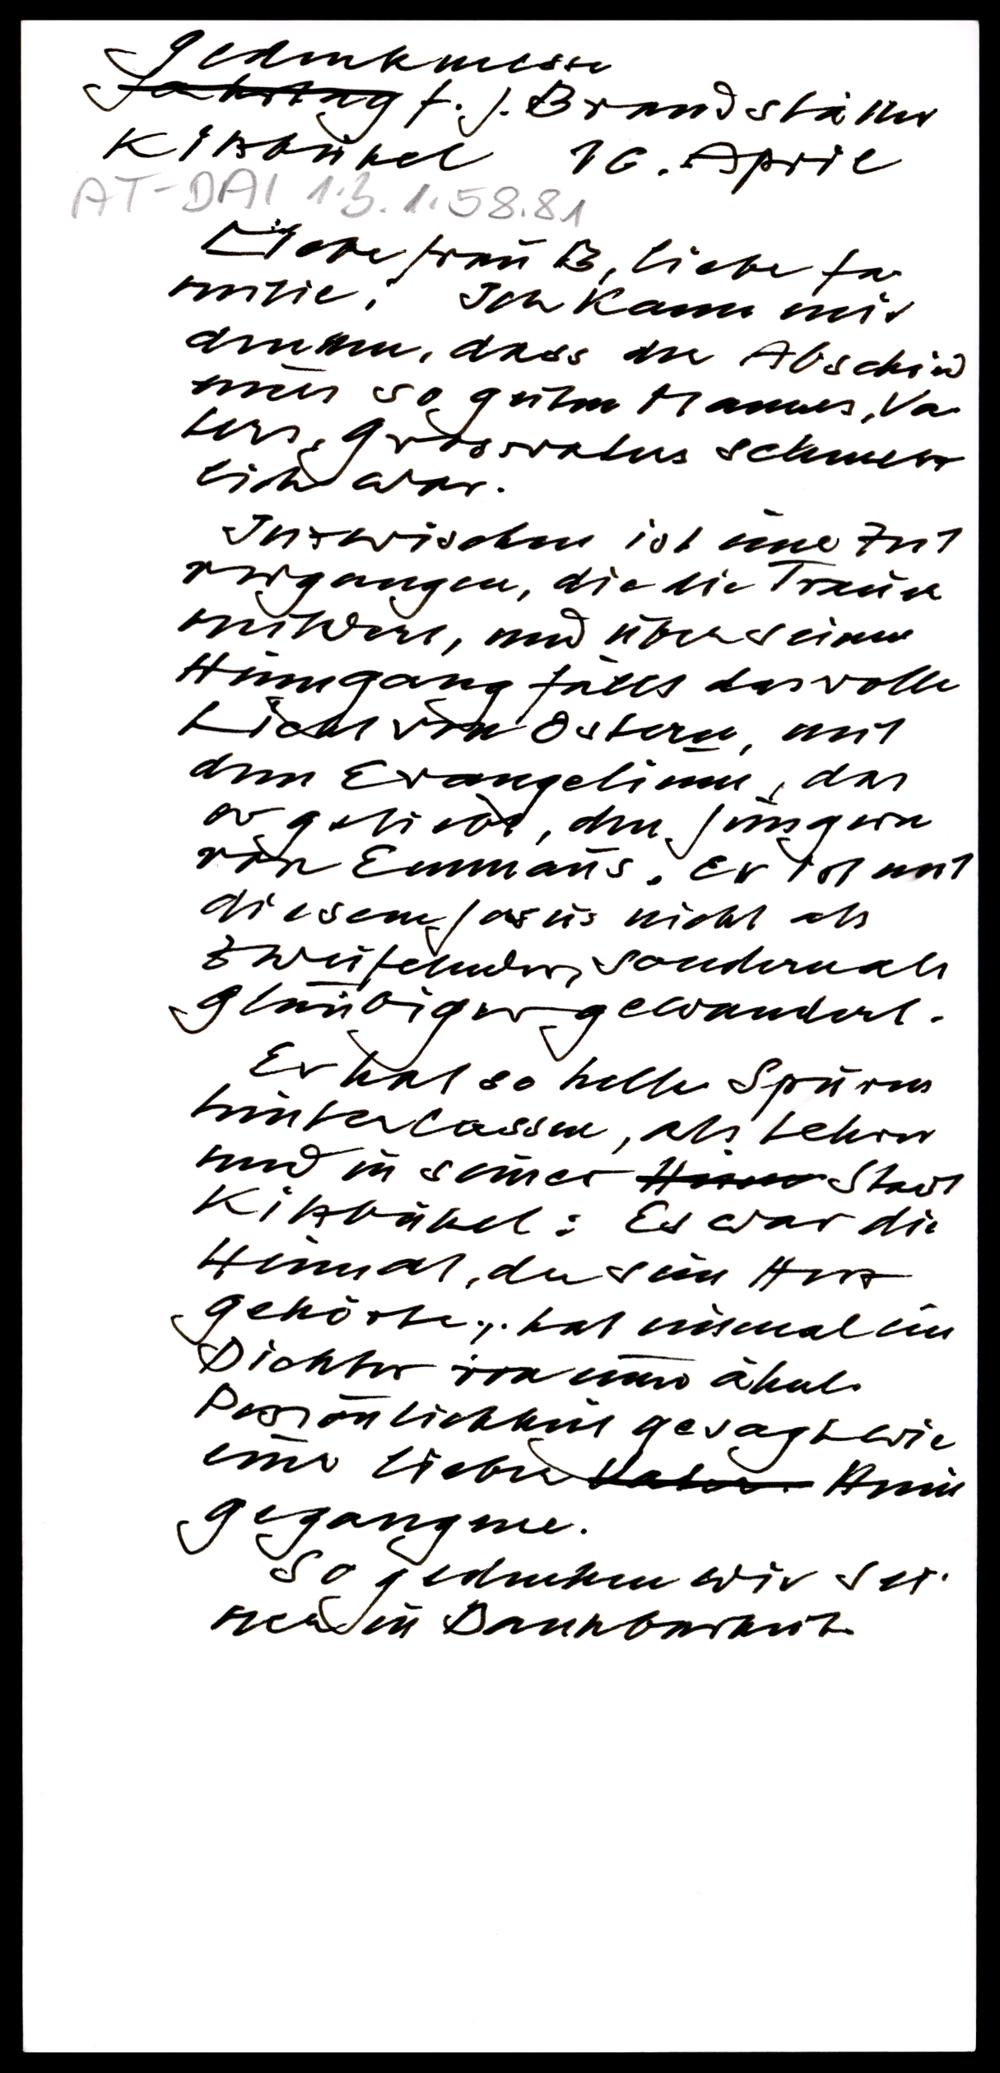 Gedenkmesse
Jahrtag f. J. Brandstätter
Kitzbühel 16. April
AT-DAI 1.3.1.58.81
Liebe Frau B, liebe Fa-
milie! Ich kann mir
denken, dass der Abschied
eines so guten Mannes, Va-
ters, Grossvaters schmerz
lich war.
Inzwischen ist eine Zeit
vergangen, die die Trauer
mildert, und über seinen
Heimgang fällt das volle
Licht von Ostern, mit
dem Evangelium, das
er geliebt, den Jüngern
von Emmaus. Er ist mit
diesem Jesus nicht als
Zweifelnder, sondern als
gläubiger gewandert.
Er hat so helle Spuren
hinterlassen, als Lehrer
und in seiner Stadt
Kitzbühel: Es war die
Heimat, der sein Herz
gehörte, hat einmal ein
Dichter von einer ähnl.
Persönlichkeit gesagt wie
einer lieber Heim
gegangene.
So gedenken wir sei-
ner in Dankbarkeit